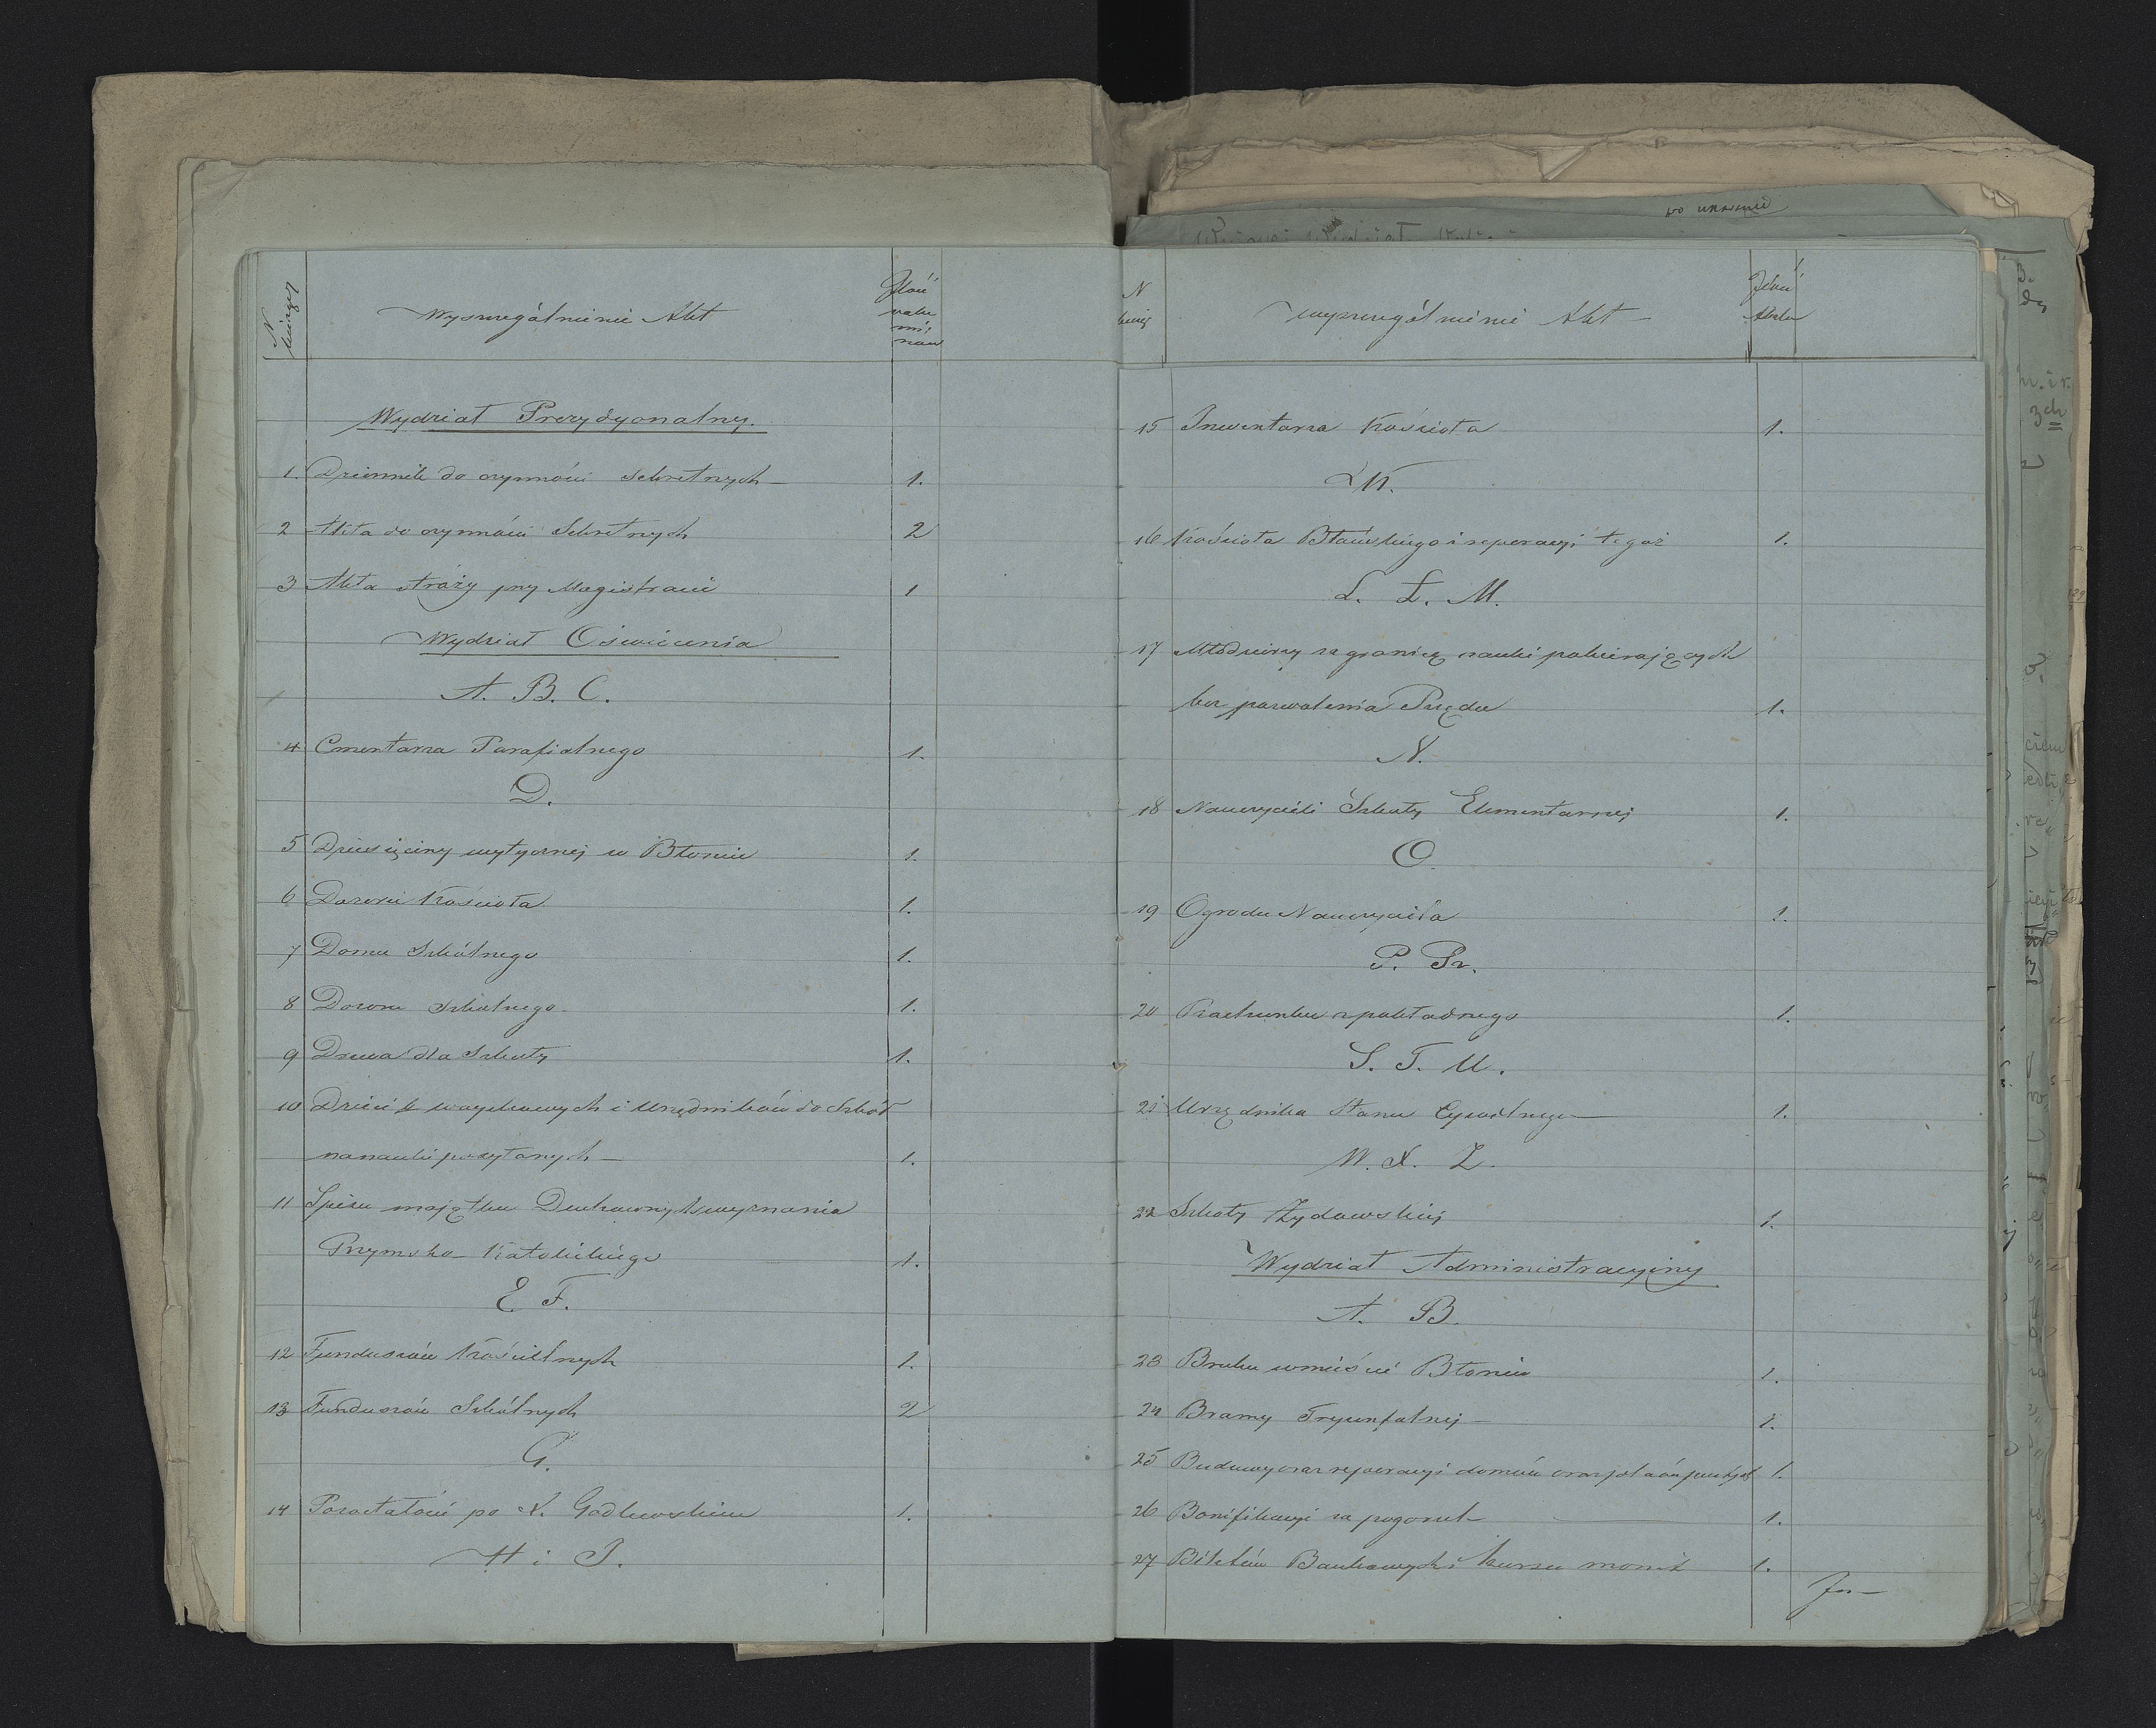 N bieżący
Wyszczególnienie Akt
Ilość
volu
mi
now
Wydział Prezydyonalny.
1. Dziennik do czynności Sekretnych — 1.
2 Akta do czynności Sekretnych 2
3 Akta straży przy Magistracie 1
Wydział Oświecenia
A. B. C.
4 Cmentarza Parafialnego 1.
D.
5 Dziesięciny wytycznej w Błoniu 1.
6 Dozoru Kościoła 1.
7 Domu Szkólnego 1.
8 Dozoru Szkolnego 1.
9 Drzewa dla Szkoły 1.
10 Dzieci wojskowych i Urzędników do Szkół
na nauki posyłanych — 1.
11 Spisu majątku Duchownych wyznania
Rzymsko-Katolickiego 1.
E. F.
12 Funduszów Kościelnych 1.
13 Funduszów Szkólnych 2
G.
14 Pozostałość po X. Godlewskim 1.
H i J.
N bieżą
wyszczególnienie Akt —
Ilość
15 Inwentarza Kościoła 1.
K.
16 Kościoła Błońskiego i reperacyi tegoż 1.
L. Ł. M.
17 Młodzieży zagranicą nauki pobierających
bez pozwolenia Rządu 1.
N.
18 Nauczycieli Szkoły Elementarnej 1.
O.
19 Ogrodu Nauczyciela 1.
P. R.
20 Rachunku z pokładnego 1.
S. T. U.
21 Urzędnika Stanu Cywilnego — 1.
W. X. Z.
22 Szkoły Żydowskiej 1.
Wydział Administracyjny
A. B.
23 Bruku w mieście Błoniu 1.
24 Bramy Tryumfalnej — 1.
25 Budowy oraz reperacyi domów oraz placów pustych 1.
26 Bonifikacyi za pogorzel — 1.
27 Biletów Bankowych i kursu monet 1.